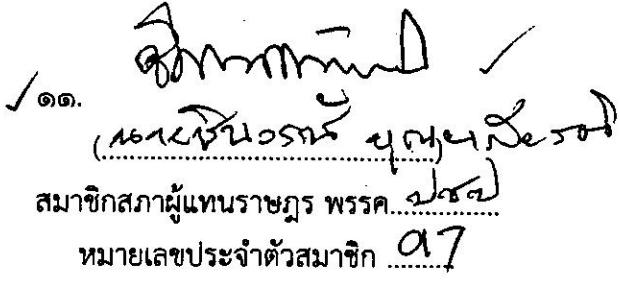 ๑๑.
(นายชินวรณ์ บุณยเกียรติ)
สมาชิกสภาผู้แทนราษฎร พรรค ปชป
หมายเลขประจำตัวสมาชิก 97